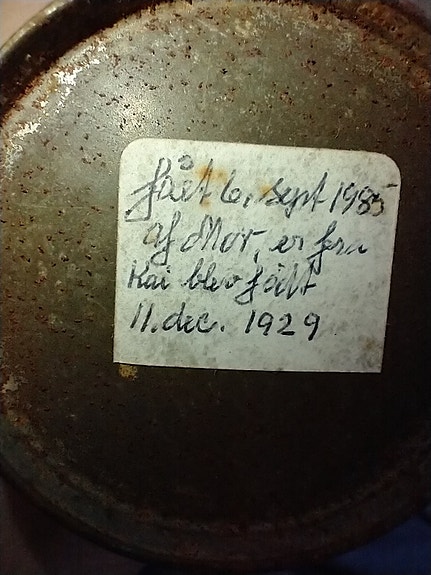 fået 6. sept 1985
af Mor, er fra
Kai blev født
11. dec. 1929